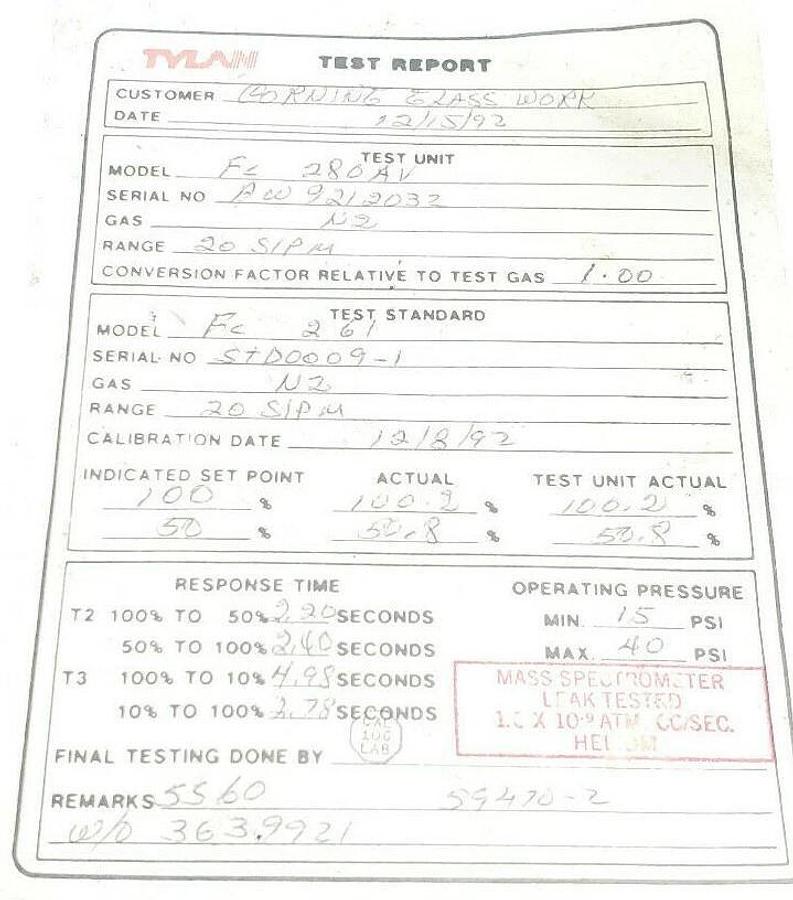 TYLAN TEST REPORT
CUSTOMER CORNING GLASS WORK
DATE 12/15/92
TEST UNIT
MODEL FC 280AV
SERIAL NO AW9212032
GAS N2
RANGE 20 SLPM
CONVERSION FACTOR RELATIVE TO TEST GAS 1.00
TEST STANDARD
MODEL FC 261
SERIAL NO STD0009-1
GAS N2
RANGE 20 SLPM
CALIBRATION DATE 12/8/92
INDICATED SET POINT ACTUAL TEST UNIT ACTUAL
100 % 100.2 % 100.2 %
50 % 50.8 % 50.8 %
RESPONSE TIME OPERATING PRESSURE
T2 100% TO 50% 2.20 SECONDS MIN. 15 PSI
50% TO 100% 2.40 SECONDS MAX. 40 PSI
T3 100% TO 10% 4.98 SECONDS
10% TO 100% 2.78 SECONDS
MASS SPECTROMETER
LEAK TESTED
X 10-9 ATM. CC/SEC.
HELIUM
CAL
LAB
FINAL TESTING DONE BY
REMARKS 5560 59470-2
W/O 363.9921